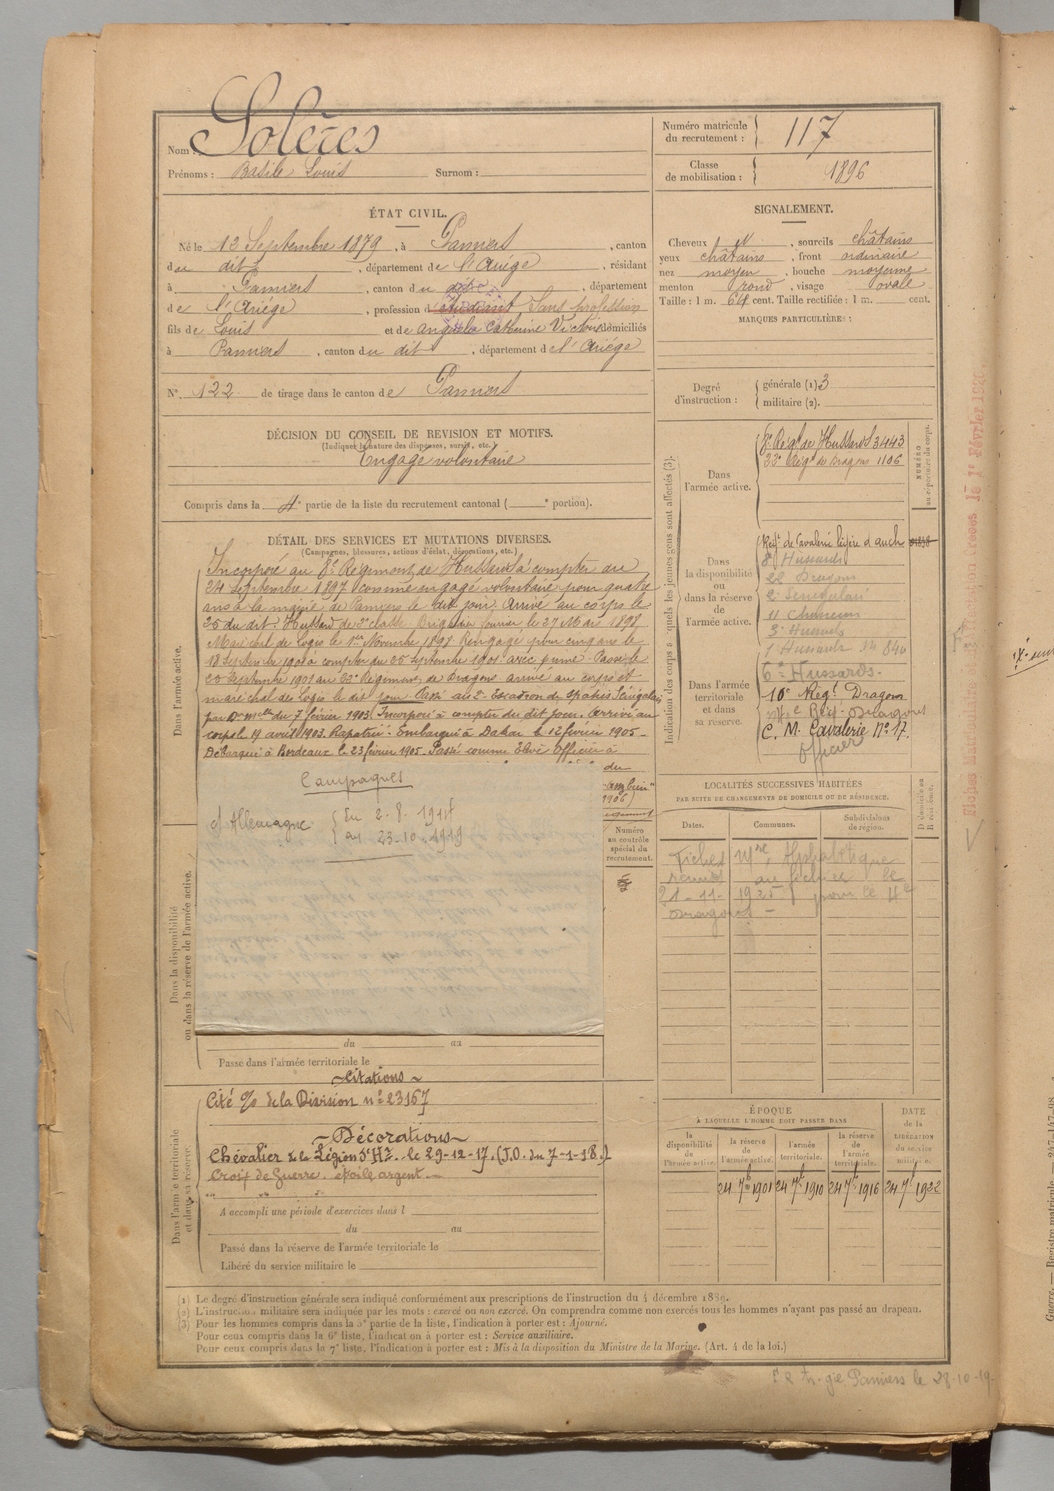 Nom : Solères
Prénoms : Basile Louis Surnom :
Numéro matricule du recrutement : 117
Classe de mobilisation : 1896
ÉTAT CIVIL.
Né le 13 Septembre 1879, à Pamiers, canton
du dit, département de l'Ariège, résidant
à Pamiers, canton du dit, département
de l'Ariège, profession d étudiant Sans profession
fils de Louis et de Angèle Catherine domiciliés
à Pamiers, canton du dit, département de l'Ariège
N° 122 de tirage dans le canton de Pamiers
SIGNALEMENT.
Cheveux N, sourcils châtains
yeux châtains, front ordinaire
nez moyen, bouche moyenne
menton rond, visage ovale
Taille : 1 m. 64 cent. Taille rectifiée : 1 m. cent.
MARQUES PARTICULIÈRES :
Degré d'instruction : générale (1) 3
militaire (2).
DÉCISION DU CONSEIL DE REVISION ET MOTIFS.
(Indiquer la nature des dispenses, sursis, etc.)
Engagé volontaire
Compris dans la 4e partie de la liste du recrutement cantonal ( e portion).
DÉTAIL DES SERVICES ET MUTATIONS DIVERSES.
(Campagnes, blessures, actions d'éclat, décorations, etc.)
Dans l'armée active.
Incorporé au 8e Régiment de Hussards à compter du
24 Septembre 1897 comme engagé volontaire pour quatre
ans à la mairie de Pamiers le dit jour. Arrivé au corps le
25 du dit. Hussard de 2e classe Brigadier fourrier le 27 Mai 1898
Maréchal de Logis le 1er Novembre 1898 Rengagé pour cinq ans le
18 Septembre 1901 à compter du 25 Septembre 1901 avec prime. Passé le
20 Septembre 1901 au 22e Régiment de Dragons arrivé au corps et
maréchal des Logis le dit jour Passé au 2e Escadron de Spahis Sénégalais
par Don mlle du 7 février 1903 Incorporé à compter du dit jour. Arrivé au
corps le 19 avril 1903. Rapatrié - Embarqué à Dakar le 12 février 1905 -
Débarqué à Bordeaux le 23 février 1905 - Passé comme Elève Officier à
du
1906)
Campagnes
c/ Allemagne { Du 2-8-1914
au 23-10-1919
Numéro au contrôle spécial du recrutement.
Dans la disponibilité ou dans la réserve de l'armée active.
du au
Passé dans l'armée territoriale le
~ Citations ~
Cité o/o de la Division n° 23167
~ Décorations ~
Chevalier de la Légion d'Hr. le 29-12-17. (J.O. du 7-1-18.)
Croix de Guerre. étoile argent.
Dans l'armée territoriale et dans sa réserve.
A accompli une période d'exercices dans l
du au
Passé dans la réserve de l'armée territoriale le
Libéré du service militaire le
Indication des corps auxquels les jeunes gens sont affectés (3).
NUMÉRO au répertoire du corps.
Dans l'armée active.
8e Régt de Hussards 3443
22e Régt de Dragons 1106
Dans la disponibilité ou dans la réserve de l'armée active.
Régt de Cavalerie légère d'auch
8e Hussards
22 Dragons
2e Sénégalais
11 Chasseurs
3e Hussards
1 Hussards 14 840
Dans l'armée territoriale et dans sa réserve.
6e Hussards.
10e Régt Dragons
Rég. Dragons
C. M. Cavalerie N° 17.
Officier
LOCALITÉS SUCCESSIVES HABITÉES
PAR SUITE DE CHANGEMENTS DE DOMICILE OU DE RÉSIDENCE.
Dates. Communes. Subdivisions de région. D domicile ou R résidence.
Fiches Mre Alphabétique
au fichier le
21-11-1925 pour le 4e
Dragons -
ÉPOQUE
À LAQUELLE L'HOMME DOIT PASSER DANS
la disponibilité de l'armée active.
la réserve de l'armée active.
l'armée territoriale.
la réserve de l'armée territoriale.
DATE de la LIBÉRATION du service militaire.
24 7b 1901 24 7b 1910 24 7b 1916 24 7b 1922
(1) Le degré d'instruction générale sera indiqué conformément aux prescriptions de l'instruction du 4 décembre 1889.
(2) L'instruction militaire sera indiquée par les mots : exercé ou non exercé. On comprendra comme non exercés tous les hommes n'ayant pas passé au drapeau.
(3) Pour les hommes compris dans la 5e partie de la liste, l'indication à porter est : Ajourné.
Pour ceux compris dans la 6e liste, l'indication à porter est : Service auxiliaire.
Pour ceux compris dans la 7e liste, l'indication à porter est : Mis à la disposition du Ministre de la Marine. (Art. 4 de la loi.)
Pamiers le 28-10-19